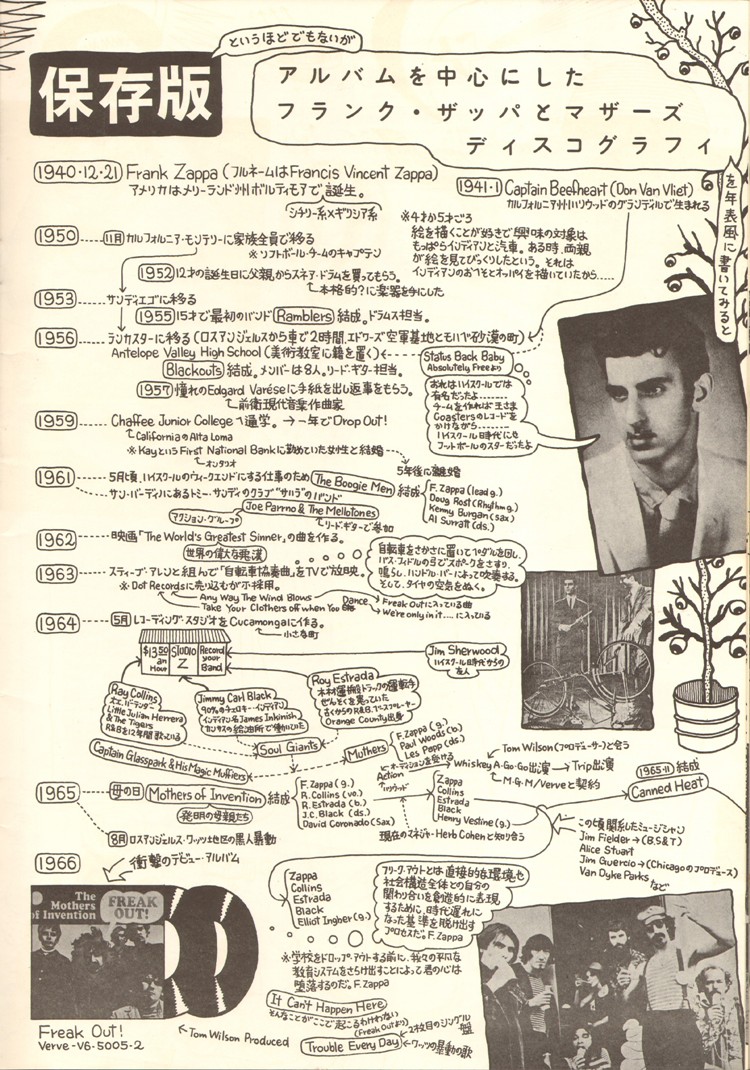 というほどでもないが
保存版
アルバムを中心にした
フランク・ザッパとマザーズ
ディスコグラフィ
を年表風に書いてみると
1940・12・21 Frank Zappa (フルネームはFrancis Vincent Zappa)
アメリカはメリーランド州ボルティモアで誕生。
シチリー系×ギリシア系
1941・1 Captain Beefheart (Don Van Vliet)
カルフォルニア州ハリウッドのグランデイルで生まれる
※4才か5才ごろ
絵を描くことが好きで興味の対象は
もっぱらインディアンと汽車。ある時、両親
が絵を見てびっくりしたという。それは
インディアンのおヘソとオッパイを描いていたから……
1950 11月 カルフォルニア・モンテリーに家族全員で移る
※ソフトボール・チームのキャプテン
1952 12才の誕生日に父親からスネア・ドラムを買ってもらう。
本格的?に楽器を手にした
1953 サンディエゴに移る
1955 15才で最初のバンド Ramblers 結成。ドラムス担当。
1956 ランカスターに移る (ロスアンジェルスから車で2時間、エドワーズ空軍基地とモハベ砂漠の町)
Antelope Valley High School (美術教室に籍を置く)
Blackouts 結成。メンバーは8人。リード・ギター担当。
1957 憧れのEdgard Varéseに手紙を出し返事をもらう。
前衛現代音楽作曲家
Status Back Baby
Absolutely Freeより
おれはハイスクールでは
有名だったよ
チームを作れば王さま
Coastersのレコードを
かけながら
ハイスクール時代にゃ
フットボールのスターだったよ
1959 Chaffee Junior College へ通学。→一年でDrop Out!
CaliforniaのAlta Loma
※KayというFirst National Bankに勤めていた女性と結婚
オンタリオ
5年後に離婚
1961 5月頃、ハイスクールのウィークエンドにする仕事のため The Boogie Men 結成
F. Zappa (lead g.)
Doug Rost (Rhythm g.)
Kenny Burgan (sax)
Al Surratt (ds.)
サン・バーディノにあるトミー・サンディのクラブ"サハラ"のバンド
Joe Perrino & The Mellotones
アクション・グループ
リード・ギターで参加
1962 映画「The World's Greatest Sinner」の曲を作る。
世界の偉大な罪人
1963 スティーブ・アレンと組んで「自転車協奏曲」をTVで放映。
自転車をさかさに置いてペダルを回し、
バス・フィドルの弓でスポークをさすり、
鳴らし、ハンドル・バーによって吹奏する。
そして、タイヤの空気をぬく。
※Dot Recordsに売り込むが不採用。
Any Way The Wind Blows
Take Your Clothes off when You Dance
Freak Outに入っている曲
We're only in it....に入っている
1964 5月 レコーディング・スタジオをCucamongaに作る。
小さな町
$13.50 an Hour
STUDIO Z
Record your Band
Jim Sherwood
ハイスクール時代からの
友人
Ray Collins
大工、バーテンダー
Little Julian Herrera
& The Tigers
R&Bを12年間歌っている
Jimmy Carl Black
90%のチェロキー・インディアン
インディアン名James Inkinish
カンサスの給油所で働いていた
Roy Estrada
木材運搬トラックの運転手
ぜんそくを患っていた
古くからのR&B、ベースプレーヤー
Orange County出身
Captain Glasspack & His Magic Mufflers
Soul Giants
Muthers
F. Zappa (g.)
Paul Woods (b.)
Les Papp (ds.)
1965 母の日 Mothers of Invention 結成
発明の母親たち
F. Zappa (g.)
R. Collins (vo.)
R. Estrada (b.)
J.C. Black (ds.)
David Coronado (sax)
オーディションを受ける
Action
ハリウッド
Whiskey A・Go・Go出演 → Trip出演
Tom Wilson (プロデューサー)と会う
M・G・M/Verveと契約
現在のマネジャーHerb Cohenと知り合う
Zappa
Collins
Estrada
Black
Henry Vestine (g.)
1965・11 結成
Canned Heat
この頃関係したミュージシャン
Jim Fielder→(B.S&T)
Alice Stuart
Jim Guercio→(Chicagoのプロデュース)
Van Dyke Parks
など
8月 ロスアンジェルス・ワッツ地区の黒人暴動
1966 衝撃のデビュー・アルバム
The
Mothers
of Invention
FREAK
OUT!
Freak Out!
Verve-V6-5005-2
Tom Wilson Produced
Zappa
Collins
Estrada
Black
Elliot Ingber (g.)
フリーク・アウトとは直接的な環境や
社会構造全体との自分の
関わり合いを創造的に表現
するために、時代遅れに
なった基準を脱け出す
プロセスだ。F. Zappa
※学校をドロップ・アウトする前に、我々の平凡な
教育システムをさらけ出すことによって君の心は
堕落するのだ。F. Zappa
It Can't Happen Here
そんなことがここで起こるわけない
(Freak Outより)
Trouble Every Day
2枚目のシングル盤
ワッツの暴動の歌